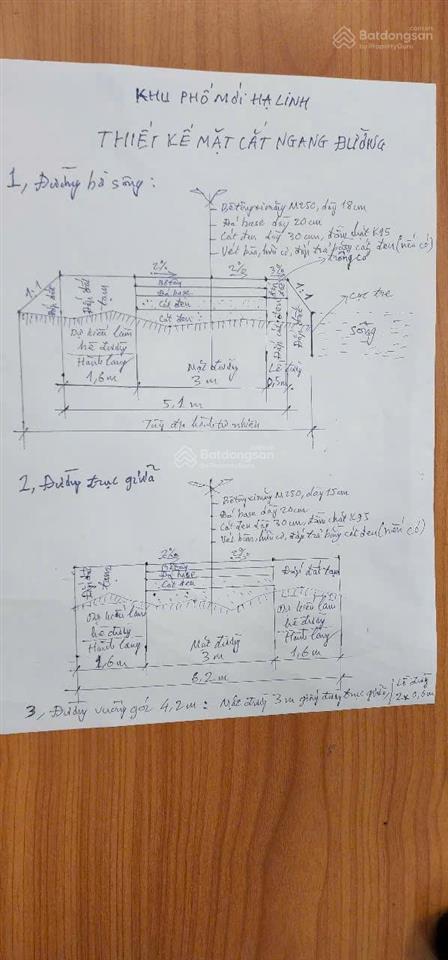 Batdongsan
by PropertyGuru
KHU PHỐ MỚI HẠ LINH
THIẾT KẾ MẶT CẮT NGANG ĐƯỜNG
1, Đường bờ sông:
Bê tông xi măng M250, dày 18cm
Đá base dày 20cm
Cát đen dày 30cm, đầm chặt K95
Vét bùn, hữu cơ, đắp trả bằng cát đen (nếu có)
trồng cỏ
2%
2%
3%
1:1
1:1
Đắp đất
Đắp đất tạm
Bê tông
Đá base
Cát đen
Cát đen
Đắp đất
cọc tre
sông
Dự kiến làm
hè đường
Hành lang
1,6m
Mặt đường
3m
Lề đường
0,5m
5,1m
Tùy địa hình tự nhiên
Batdongsan
by PropertyGuru
2, Đường trục giữa
Bê tông xi măng M250, dày 15cm
Đá base dày 20cm
Cát đen dày 30cm, đầm chặt K95
Vét bùn, hữu cơ, đắp trả bằng cát đen (nếu có)
2%
2%
Đắp đất tạm
Bê tông
Đá base
Cát đen
Đắp đất tạm
Dự kiến làm
hè đường
Hành lang
1,6m
Mặt đường
3m
Dự kiến làm
hè đường
Hành lang
1,6m
6,2m
3, Đường vuông góc 4,2m: Mặt đường 3m giống đường trục giữa / Lề đường
2x0,6m